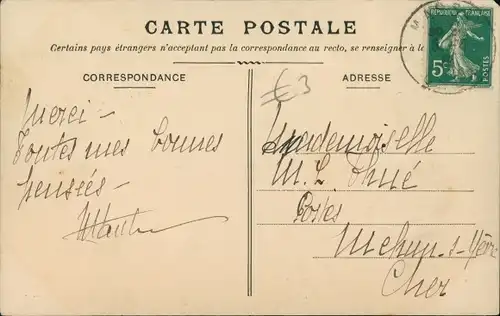 CARTE POSTALE
Certains pays étrangers n'acceptent pas la correspondance au recto, se renseigner à
CORRESPONDANCE
ADRESSE
RÉPUBLIQUE FRANÇAISE
5c
POSTES
€3
Merci -
Toutes mes bonnes
pensées -
Mademoiselle
M. L.
Postes
Mehun-s-Yèvre
Cher